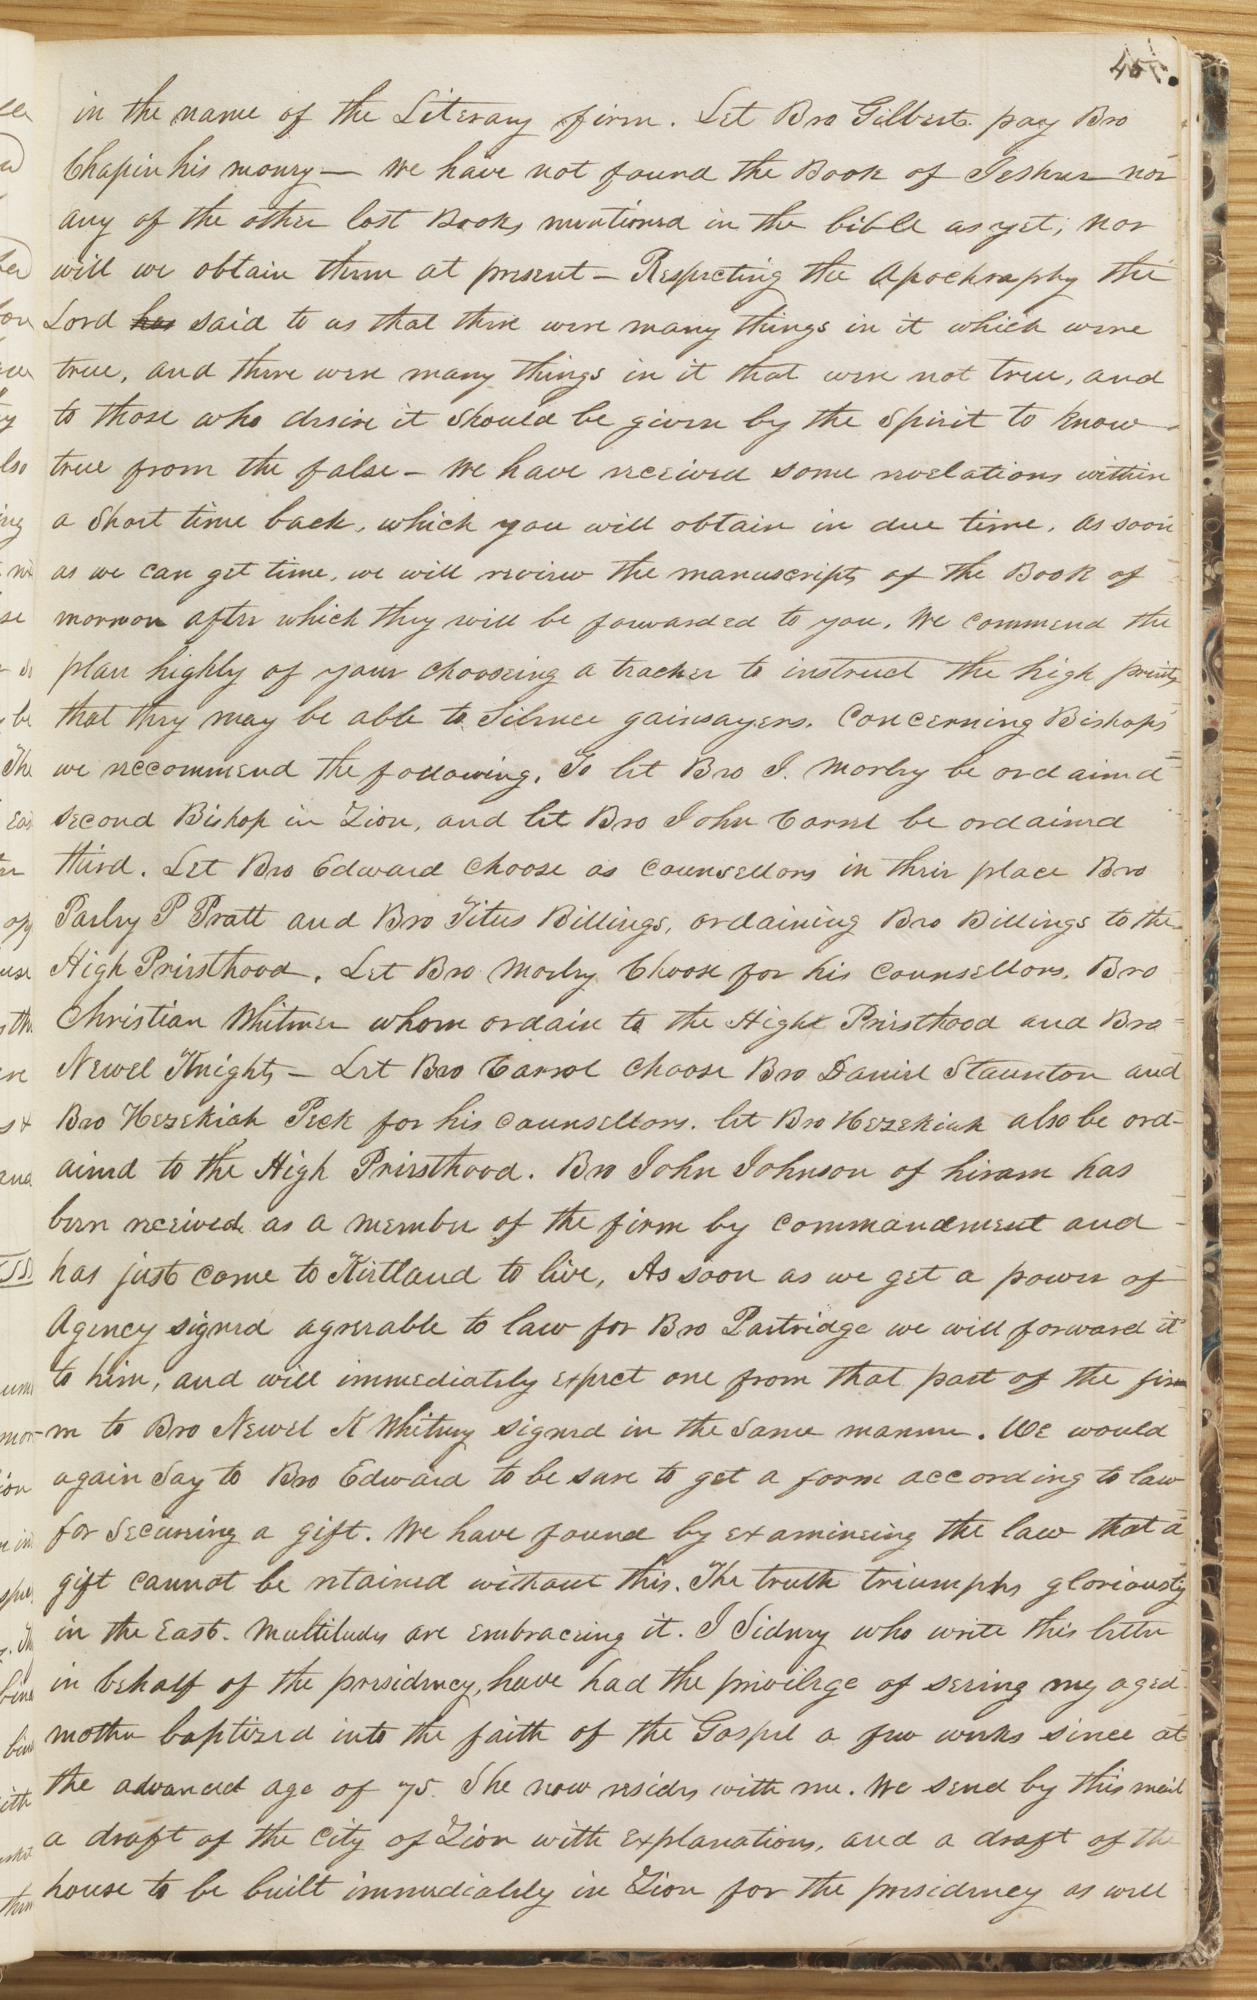 in the name of the Literary firm. Let Bro Gilbert pay Bro
Chapin his money— We have not found the Book of Jesher nor
any of the other lost Books mentioned in the bible as yet; nor
will we obtain them at present— Respecting the Apochraphy the
Lord has said to us that there were many things in it which were
true, and there were many things in it that were not true, and
to those who desire it should be given by the Spirit to know
true from the false— We have received some revelations within
a Short time back, which you will obtain in due time. As soon
as we can get time, we will review the manuscripts of the Book of
mormon after which they will be forwarded to you. We commend the
plan highly of your chooseing a teacher to instruct the high priests
that they may be able to Silence gainsayers. Concerning Bishops
we reccommend the following. To let Bro I. Morley be ordained
second Bishop in Zion, and let Bro John Correl be ordained
third. Let Bro Edward choose as counsellors in their place Bro
Parley P Pratt and Bro Titus Billings, ordaining Bro Billings to the
High Priesthood. Let Bro Morley Choose for his counsellors, Bro
Christian Whitmer whom ordain to the High Priesthood and Bro
Newel Knights— Let Bro Carrol choose Bro Daniel Staunton and
Bro Hezekiah Peck for his counsellors. let Bro Hezekiah also be ord-
ained to the High Priesthood. Bro John Johnson of hiram has
been received as a member of the firm by commandment and
has just come to Kirtland to live, As soon as we get a power of
Agency signed agreeable to law for Bro Partridge we will forward it
to him, and will immediately expect one from that part of the fir
m to Bro Newel K Whitney signed in the same manner. We would
again Say to Bro Edward to be sure to get a form according to law
for secureing a gift. We have found by examineing the law that a
gift cannot be retained without this. The truth triumphs gloriously
in the East. Multitudes are embraceing it. I Sidney who write this letter
in behalf of the presidency, have had the privilege of seeing my aged
mother baptized into the faith of the Gospel a few weeks since at
the advanced age of 75. She now resides with me. We send by this mail
a draft of the city of Zion with explanations, and a draft of the
house to be built immediately in Zion for the presidency as well